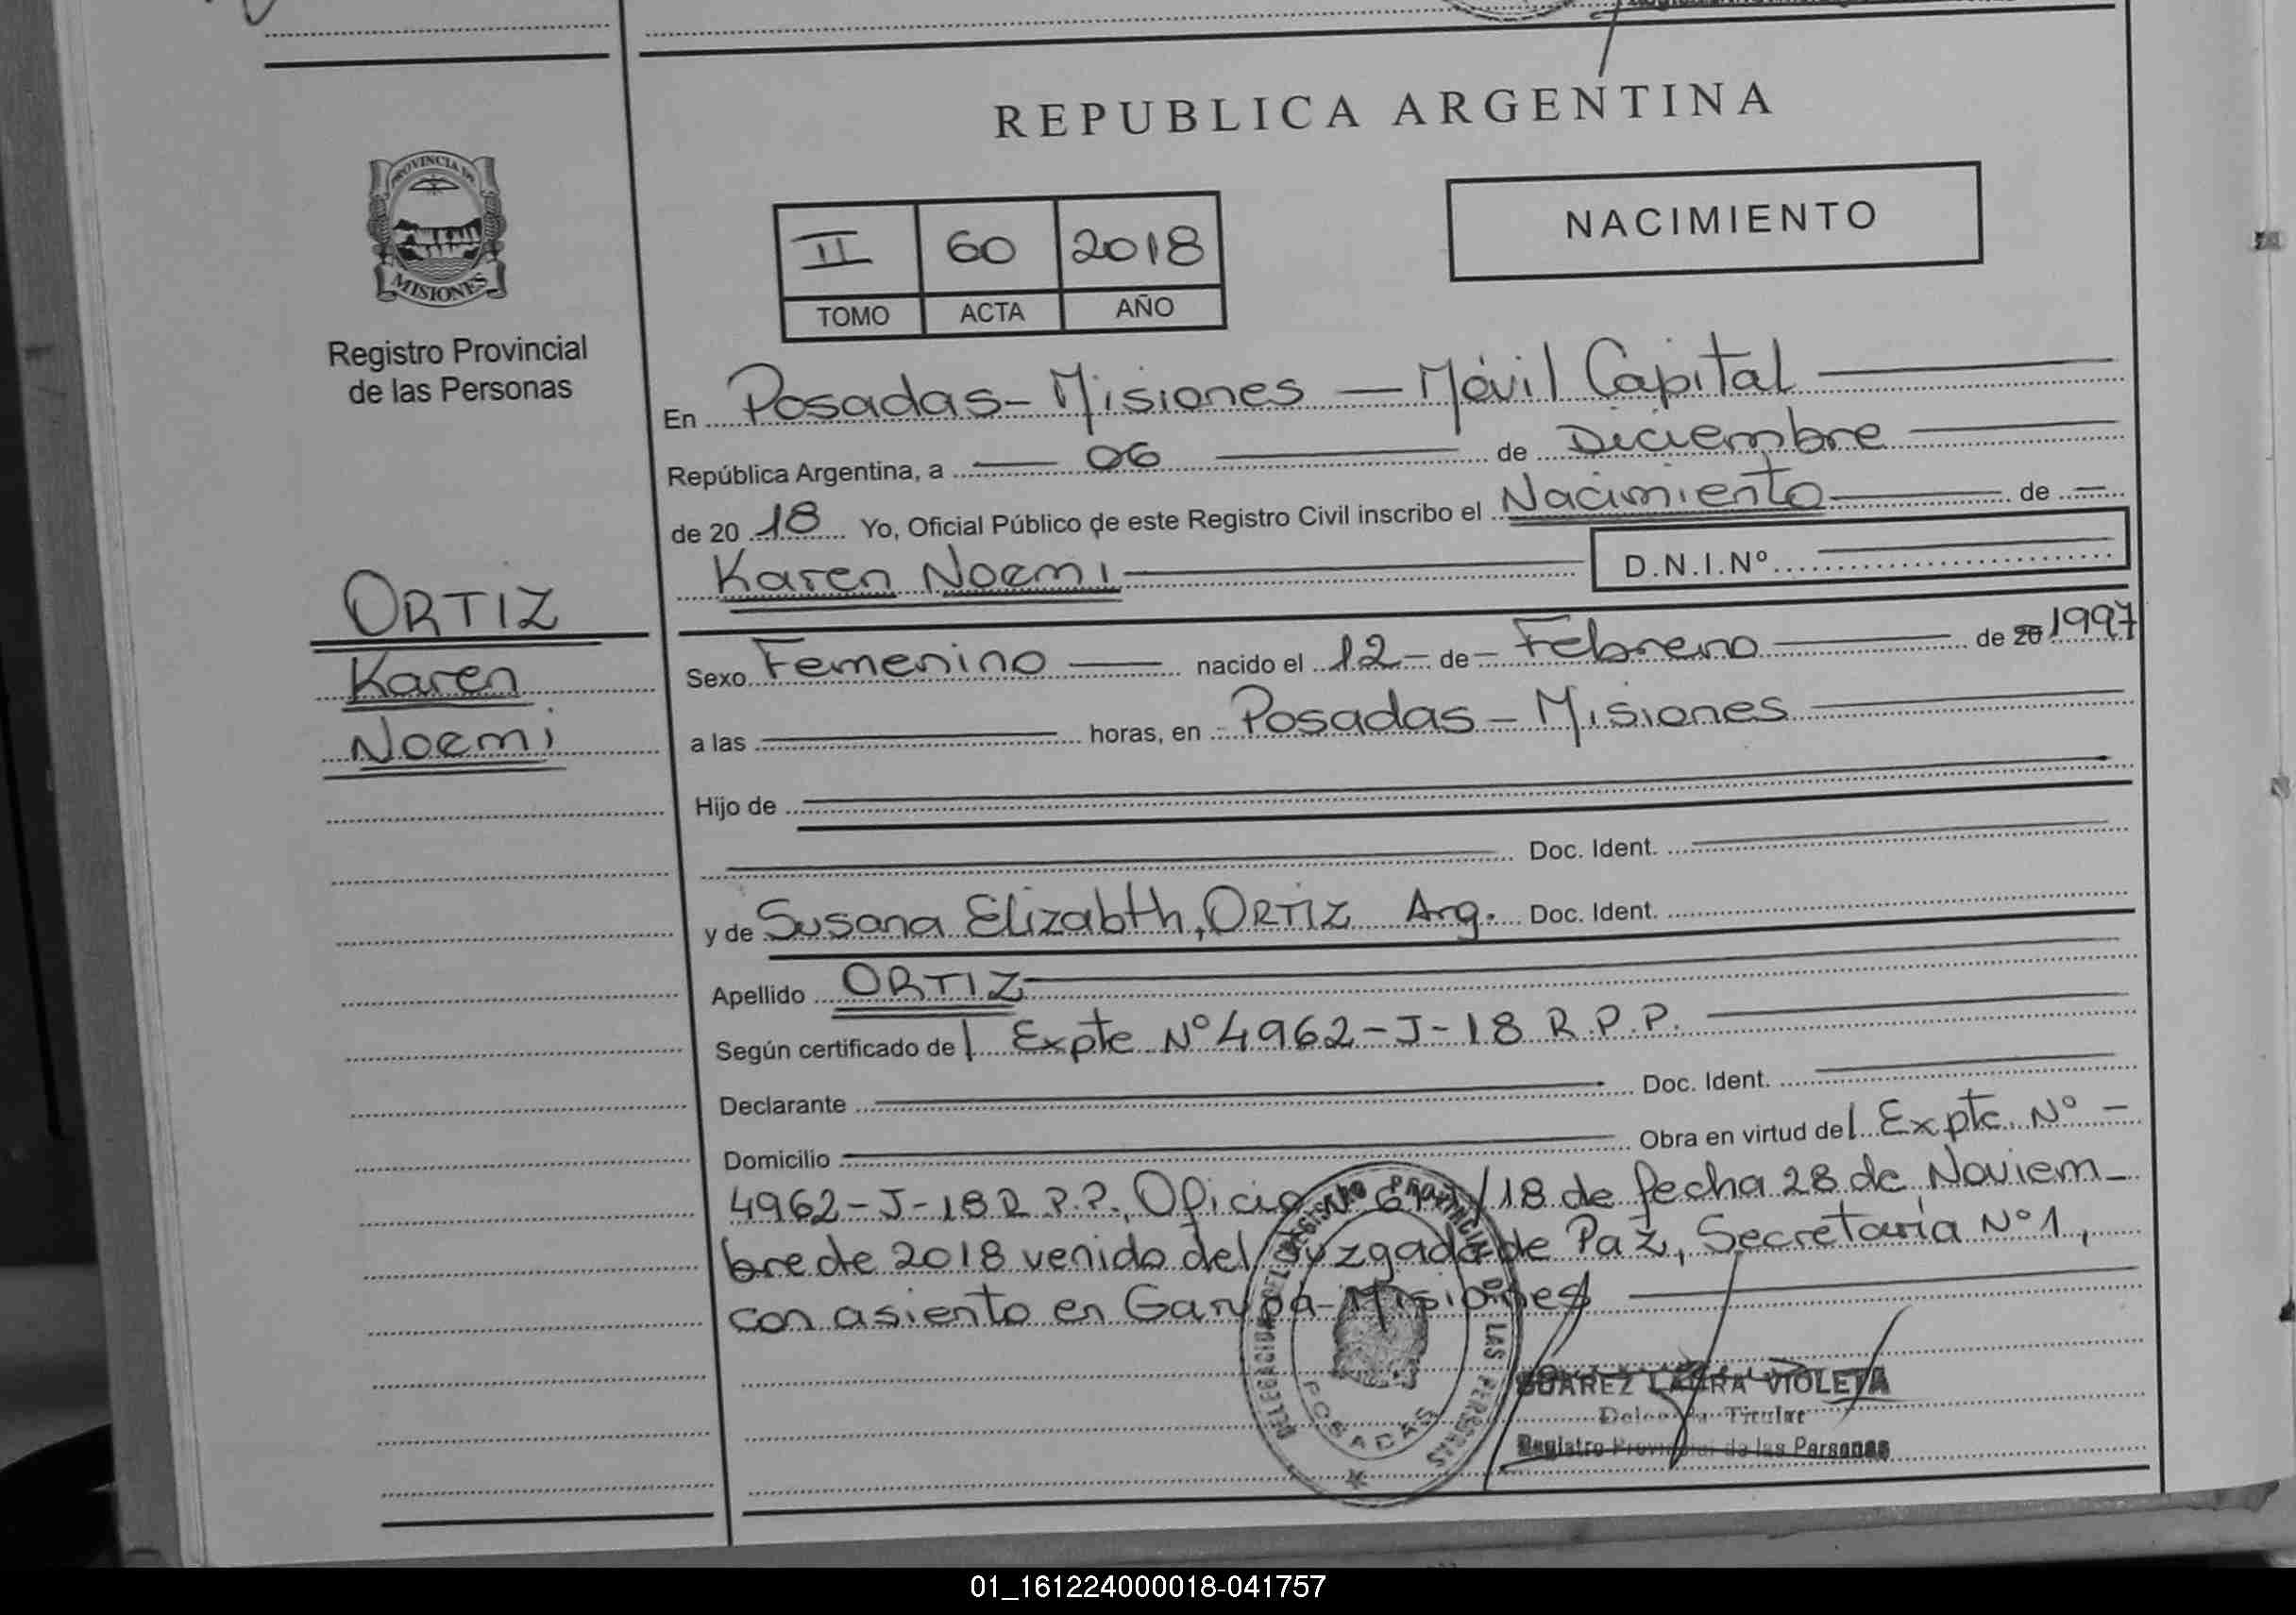 REPUBLICA ARGENTINA
PROVINCIA DE
MISIONES
Registro Provincial
de las Personas
II 60 2018
TOMO ACTA AÑO
NACIMIENTO
En Posadas - Misiones - Móvil Capital
República Argentina, a 06 de Diciembre
de 20 18 Yo, Oficial Público de este Registro Civil inscribo el Nacimiento de
Karen Noemi D.N.I.Nº
ORTIZ
Karen
Noemi
Sexo Femenino nacido el 12 - de - Febrero de 20 1997
a las horas, en Posadas - Misiones
Hijo de
Doc. Ident.
y de Susana Elizabth, ORTIZ Arg. Doc. Ident.
Apellido ORTIZ
Según certificado del Expte Nº 4962-J-18 R.P.P.
Declarante Doc. Ident.
Domicilio Obra en virtud del Expte. Nº -
4962-J-18 R.P.P., Oficio /18 de fecha 28 de Noviem-
bre de 2018 venido del Juzgado de Paz, Secretaría Nº 1,
con asiento en Garupá - Misiones
DELEGACION DEL REGISTRO PROVINCIAL DE LAS PERSONAS
POSADAS
SUAREZ LAURA VIOLETA
Titular
Registro Provincial de las Personas
01_161224000018-041757